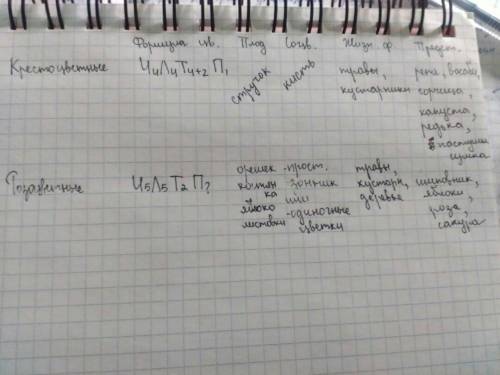 Формула цв. Плод Соцв. Жизн. ф. Предст.
Крестоцветные Ч4Л4Т4+2 П1 стручок кисть травы, репа, васаби,
кустарники горчица,
капуста,
редька,
пастушья
сумка
орешек -прост. травы,
Розоцветные Ч5Л5Т2 П? костян зонтик кустарн, шиповник,
ка или деревья яблоки,
яблоко -одиночные роза,
листовка цветки сакура